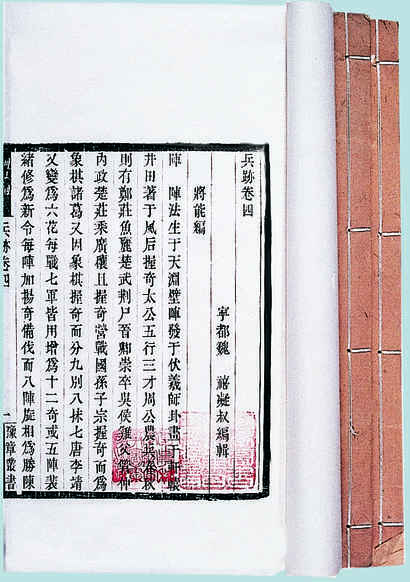 兵跡卷四
寧都魏 禧凝叔編輯
將能編
陣 陣法生于天淵壁陣發于伏羲師卦畫于軒轅
井田著于風后握奇太公五行三才周公農兵
則有鄭莊魚麗楚武荆尸晉崇卒吳侯雞父仲
內政楚莊乘廣且握奇營戰國孫子宗握奇而爲
象棋諸葛又因象棋握奇而分九別八抹七唐李靖
又變爲六花每戰七軍皆用增爲十二奇或五陣裴
緒修爲新令每陣加揚奇備伐而八陣旋相爲勝陳
兵跡卷四
豫章叢書